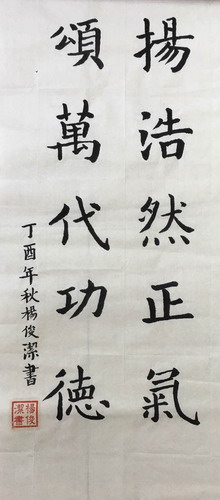 揚浩然正氣
頌萬代功德
丁酉年秋楊俊潔書
楊俊
潔書